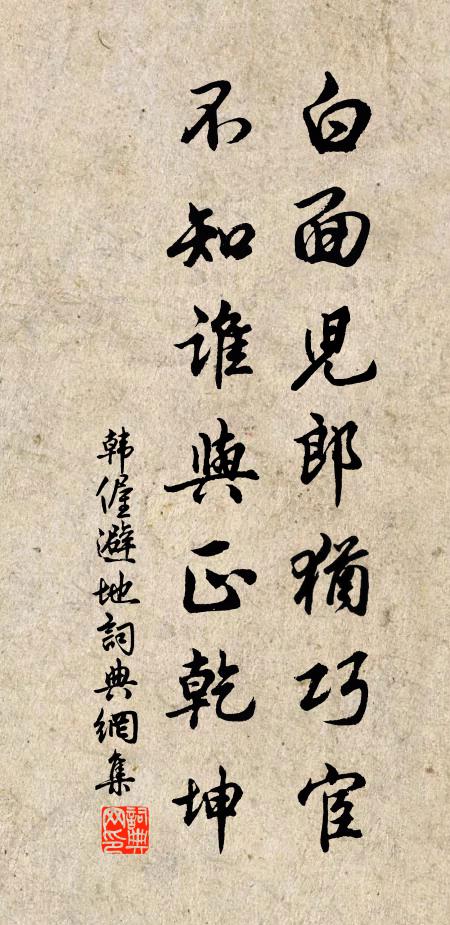 白面兒郎猶巧宦
不知誰與正乾坤
韩偓避地詞典網集
詞典网印